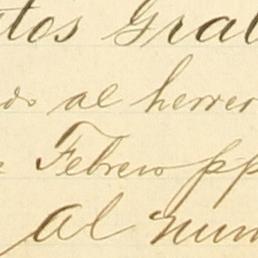 tos Gral
do al herrer
Febrero pp
al num